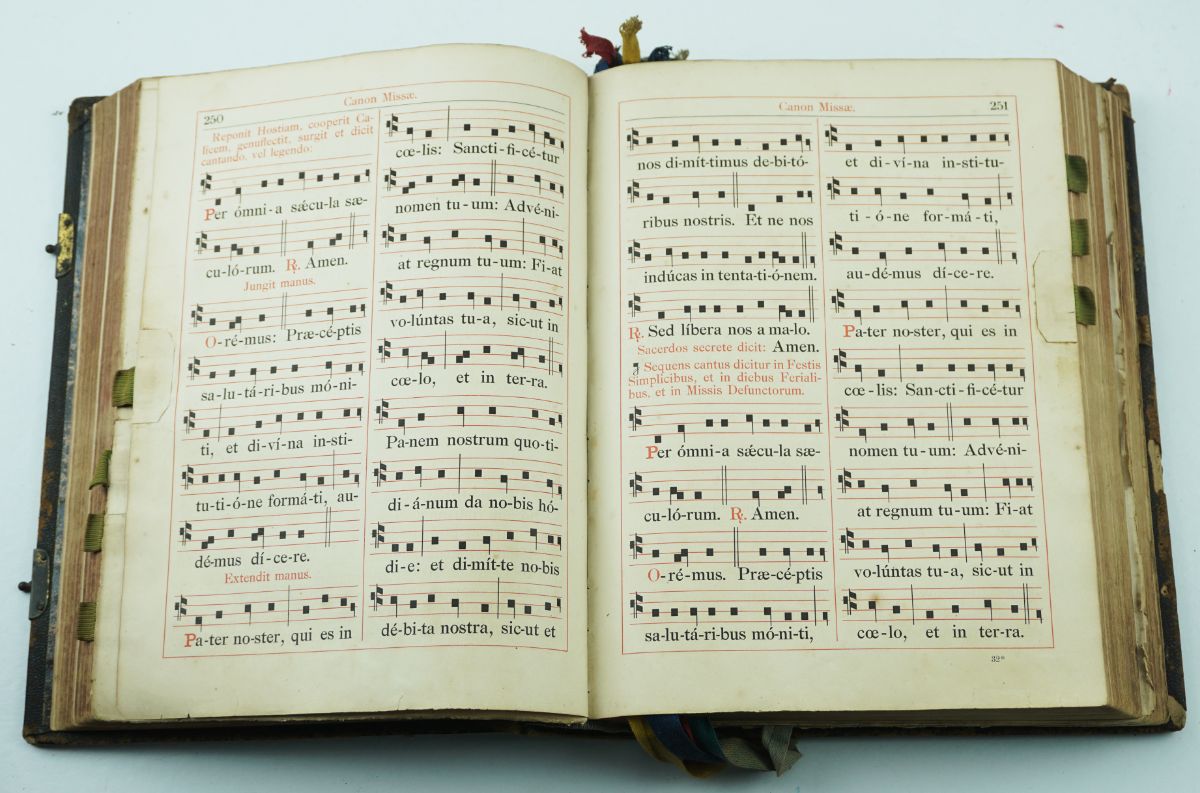 250
Canon Missæ.
Reponit Hostiam, cooperit Ca-
licem, genuflectit, surgit et dicit
cantando, vel legendo:
Per ómni-a sǽcu-la sæ-
cu-ló-rum. ℟. Amen.
Jungit manus.
O-ré-mus: Præ-cé-ptis
sa-lu-tá-ri-bus mó-ni-
ti, et di-ví-na in-sti-
tu-ti-ó-ne formá-ti, au-
dé-mus dí-ce-re.
Extendit manus.
Pa-ter no-ster, qui es in
cœ-lis: Sancti-fi-cé-tur
nomen tu-um: Advé-ni-
at regnum tu-um: Fi-at
vo-lúntas tu-a, sic-ut in
cœ-lo, et in ter-ra.
Pa-nem nostrum quo-ti-
di-á-num da no-bis hó-
di-e: et di-mít-te no-bis
dé-bi-ta nostra, sic-ut et
Canon Missæ.
251
nos di-mít-timus de-bi-tó-
ribus nostris. Et ne nos
indúcas in tenta-ti-ó-nem.
℟. Sed líbera nos a ma-lo.
Sacerdos secrete dicit: Amen.
Sequens cantus dicitur in Festis
Simplicibus, et in diebus Feriali-
bus, et in Missis Defunctorum.
Per ómni-a sǽcu-la sæ-
cu-ló-rum. ℟. Amen.
O-ré-mus. Præ-cé-ptis
sa-lu-tá-ri-bus mó-ni-ti,
et di-ví-na in-sti-tu-
ti-ó-ne for-má-ti,
au-dé-mus dí-ce-re.
Pa-ter no-ster, qui es in
cœ-lis: San-cti-fi-cé-tur
nomen tu-um: Advé-ni-
at regnum tu-um: Fi-at
vo-lúntas tu-a, sic-ut in
cœ-lo, et in ter-ra.
32*